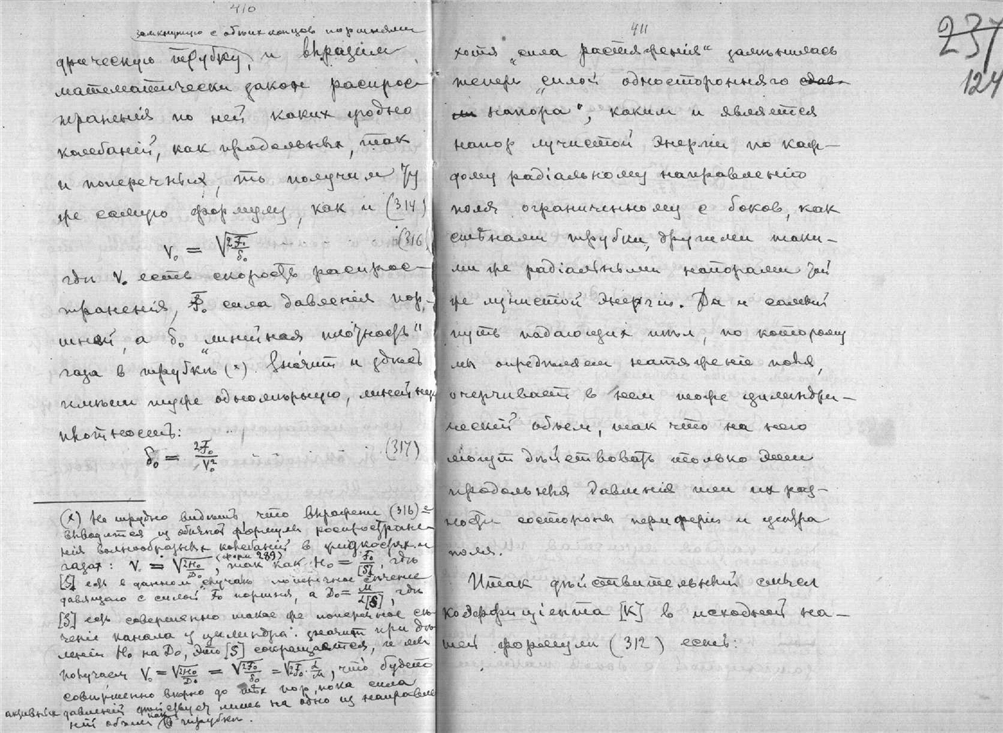 410
замкнутую с обоих концов поршнями
дрическую трубку, и выразим
математически закон распрос-
транения по ней каких угодно
колебаний, как продольных, так
и поперечных, то получим ту
же самую формулу, как и (314)
V₀ = √(2F₀/δ₀) (316)
гдѣ V₀ есть скорость распрос-
транения, F₀ сила давления пор-
шней, а δ₀ „линейная плотность"
газа в трубкѣ (×) Значит и здѣсь
имѣем ту же одномѣрную, линейную
плотность:
δ₀ = 2F₀/V₀² (317)
(×) Не трудно видѣть что выражение (316)
выводится из обычной формулы распростране-
нія волнообразных колебаний в жидкостях и
газах: V₀ = √(2H₀/D₀) (форм 289), так как H₀ = F₀/[S], гдѣ
[S] есть в данном случаѣ поперечное сѣчение
давящаго с силой F₀ поршня, а D₀ = M/2[S], гдѣ
[S] есть совершенно такое же поперечное сѣ-
чение канала у цилиндра. Значит при дѣ-
лении H₀ на D₀, это [S] сокращается, и мы
получаем V₀ = √(2H₀/D₀) = √(2F₀/δ₀) =, что будет
совершенно вѣрно до тѣх пор, пока сила
активных давлений дѣйствует лишь на одно из направле-
ний трубки.
411
хотя „сила растяжения" замѣнилась
теперь „силой односторонняго
напора", каким и является
напор лучистой энергіи по каж-
дому радіальному направлению
поля ограниченному с боков, как
стѣнами трубки, другими таки-
ми же радіальными напорами той
же лучистой энергіи. Да и самый
путь падающих тѣл, по которому
мы опредѣляем натяжение поля,
очерчивает в нем тоже цилиндри-
ческий объем, так что на него
могут дѣйствовать только эти
продольныя давления или их раз-
ности со стороны периферіи и центра
поля.
Итак дѣйствительный смысл
коэффициента [K] в исходной на-
шей формулѣ (312) есть:
237
124